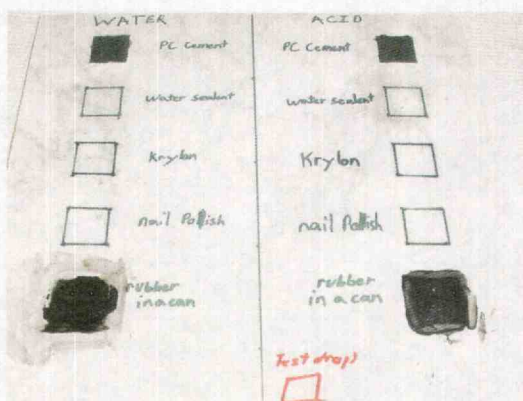 WATER
PC Cement
water sealant
Krylon
nail Pollish
rubber
in a can
ACID
PC Cement
water sealant
Krylon
nail Pollish
rubber
in a can
Test drops